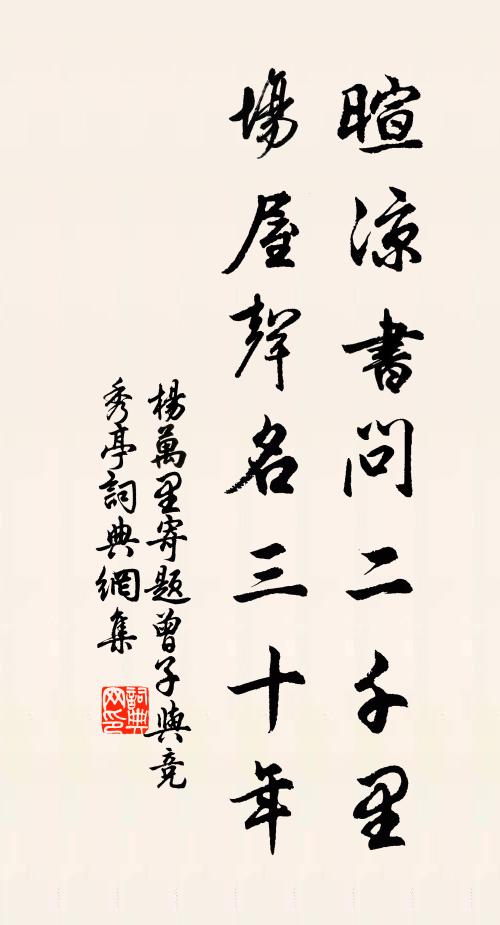 暄涼書問二千里
場屋聲名三十年
楊萬里寄題曾子與竞
秀亭詞典網集
詞典网印